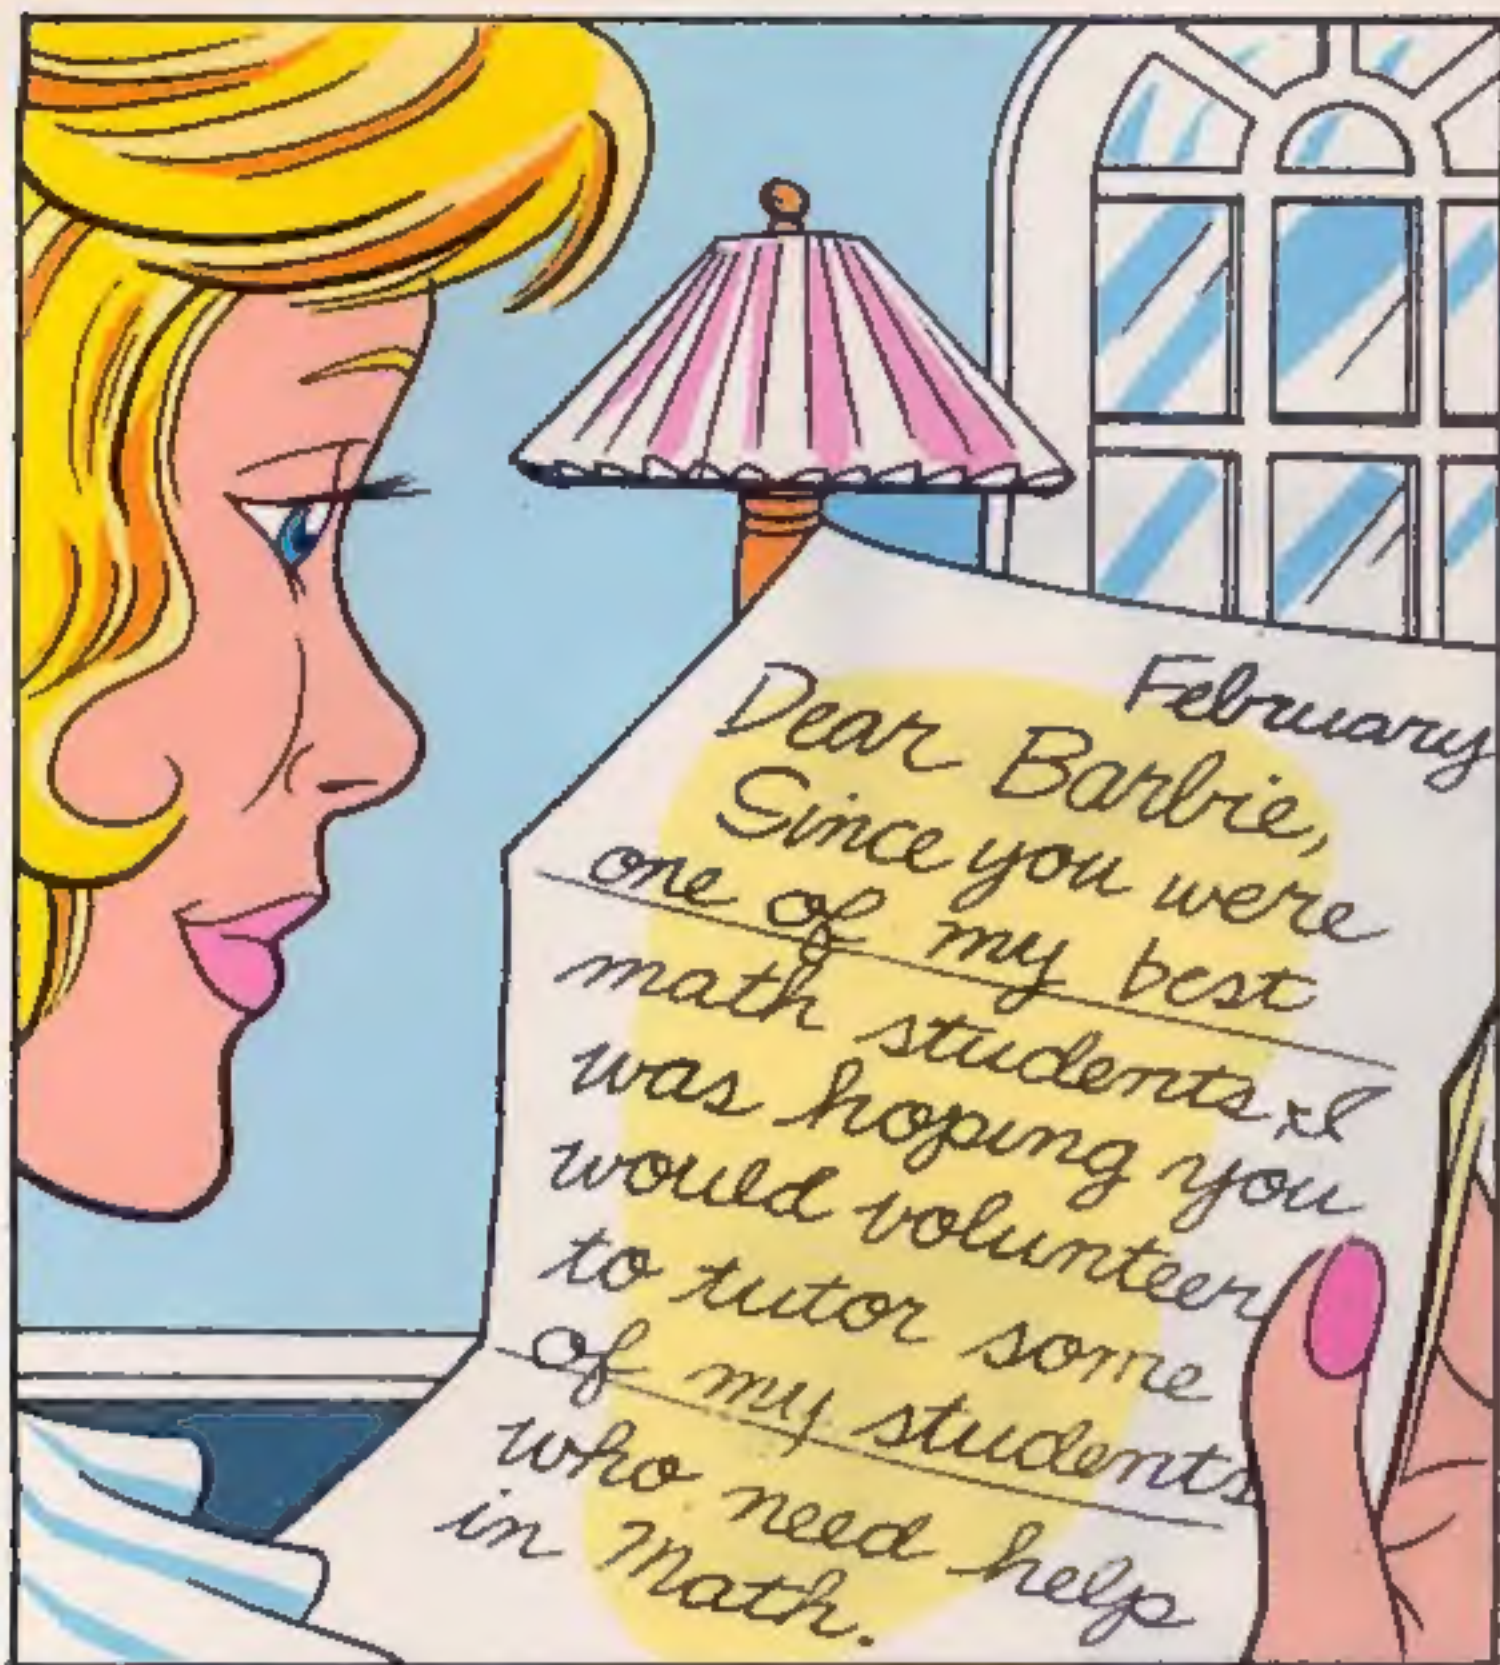 February
Dear Barbie,
Since you were
one of my best
math students I
was hoping you
would volunteer
to tutor some
of my students
who need help
in Math.